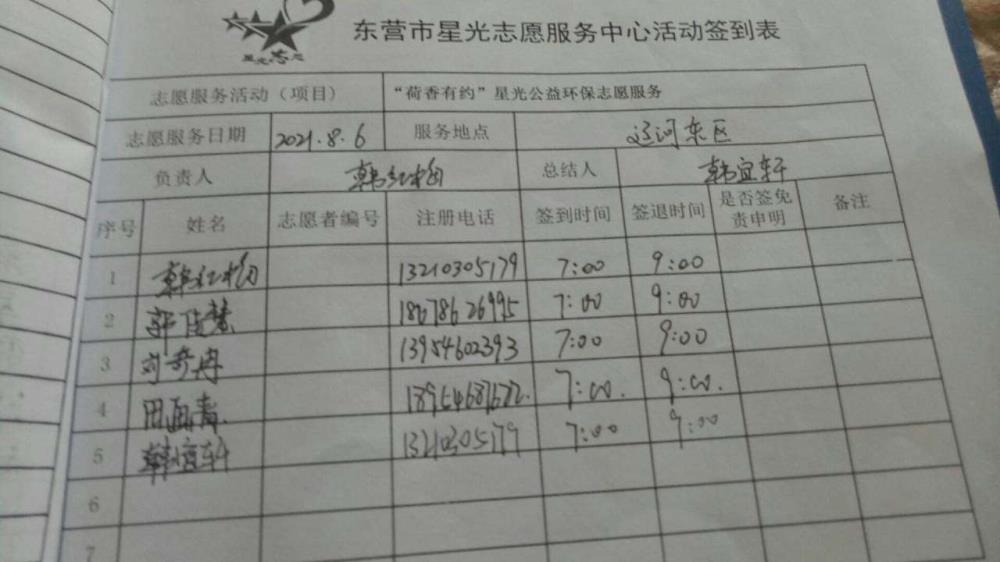 星光志愿
东营市星光志愿服务中心活动签到表
志愿服务活动（项目） “荷香有约”星光公益环保志愿服务
志愿服务日期 2021.8.6 服务地点 辽河东区
负责人 韩红梅 总结人 韩宜轩
序号 姓名 志愿者编号 注册电话 签到时间 签退时间 是否签免责申明 备注
1 韩红梅 13210305179 7:00 9:00
2 郭佳慧 18678626995 7:00 9:00
3 刘奇冉 13954602393 7:00 9:00
4 田 7:00. 9:00.
5 韩宜轩 13210305179 7:00 9:00
6
7